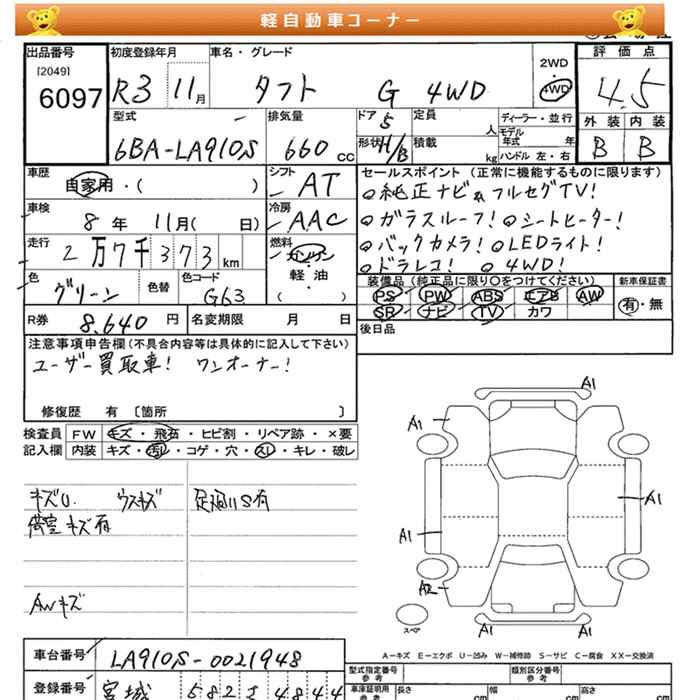 軽自動車コーナー
出品番号 初度登録年月 車名・グレード 2WD 評価点
[2049]
6097 R3 11月 タフト G 4WD 4WD 4.5
型式 排気量 ドア 5 定員 人 ディーラー・並行 外装 内装
6BA-LA910S 660cc 形状 H/B 積載 kg モデル年式 年 ハンドル 左・右 B B
車歴 自家用・( ) シフト AT セールスポイント (正常に機能するものに限ります)
○純正ナビ&フルセグTV!
車検 8年 11月( 日) 冷房 AAC ○ガラスルーフ! ○シートヒーター!
走行 2万7千373km 燃料 ガソリン ○バックカメラ! ○LEDライト!
軽・油 ○ドラレコ! ○4WD!
色 グリーン 色替 色コード G63 ・( )
装備品 (純正品に限り○をつけてください) 新車保証書
PS PW ABS エアB AW 有・無
SR ナビ TV カワ
R券 8,640円 名変期限 月 日 後日品
注意事項申告欄(不具合内容等は具体的に記入して下さい)
ユーザー買取車! ワンオーナー!
修復歴 有 〔箇所 〕
検査員 FW キズ・飛石・ヒビ割・リペア跡・×要
記入欄 内装 キズ・汚レ・コゲ・穴・スレ・キレ・破レ
キズU. ウスキズ 足廻りS有
荷室キズ有
AWキズ
A1
A1
A1
A1
A2
A1
A1
スペア
A-キズ E-エクボ U-凹み W-補修跡 S-サビ C-腐食 XX-交換済
車台番号 LA910S-0021948
型式指定番号 類別区分番号
参考 参考
登録番号 宮城 582 さ 4844
車庫証明用 長さ cm 幅 cm 高さ cm
参考